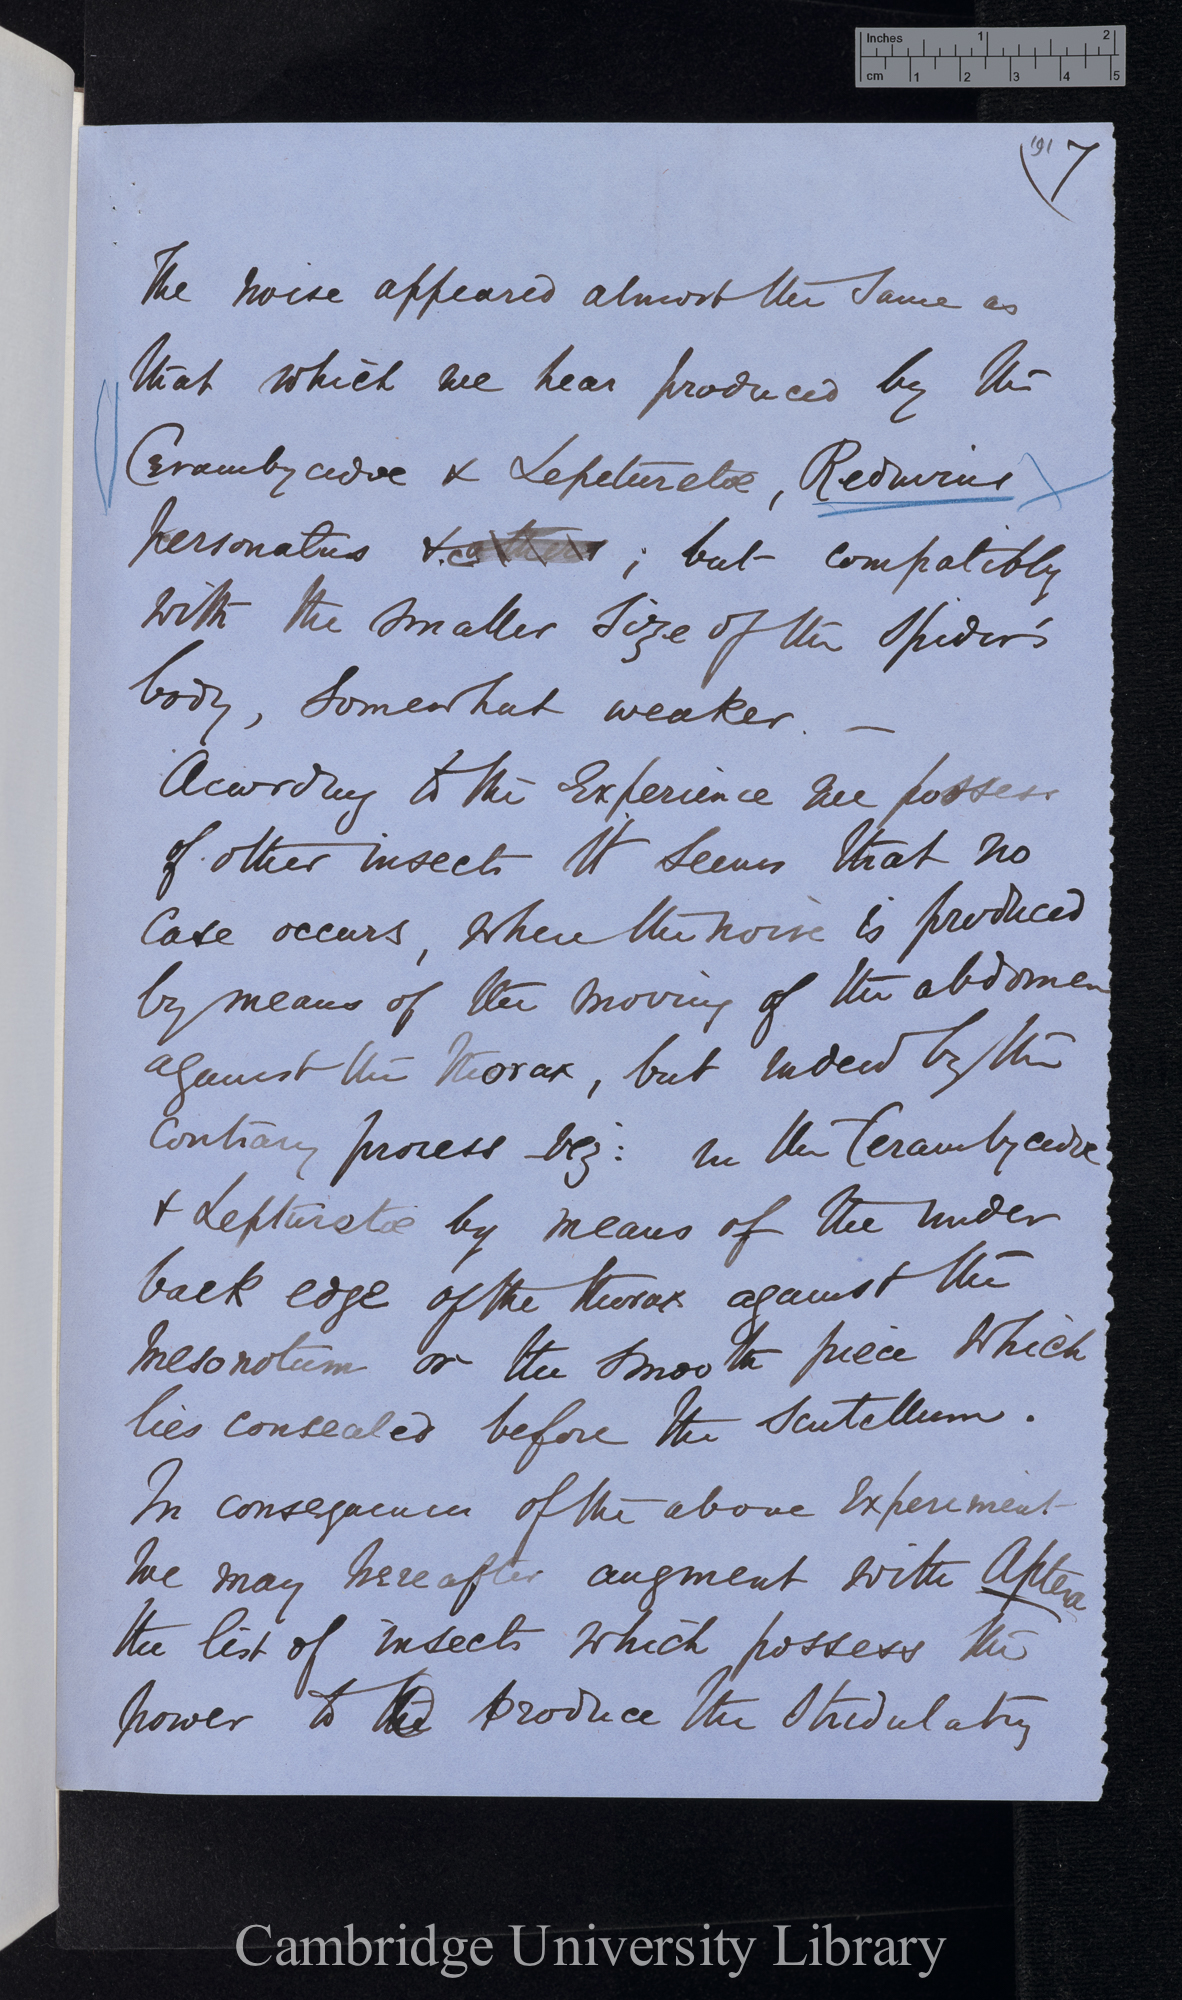 Inches 1 2
cm 1 2 3 4 5
191 7
The noise appeared almost the same as
that which we hear produced by the
Cerambycidae & Leptureta, Reduvius
personatus &c others; but compatibly
with the smaller size of the spider's
body, somewhat weaker. —
According to the Experience we possess
of other insects it seems that no
Case occurs, where the noise is produced
by means of the moving of the abdomen
against the thorax, but indeed by the
Contrary process viz: in the Cerambycidae
& Lepturetae by means of the under
back edge of the thorax against the
Mesonotum or the smooth piece which
lies concealed before the Scutellum.
In consequence of the above Experiment
we may hereafter augment with Aptera
the list of insects which possess the
power to the produce the Stridulating
Cambridge University Library